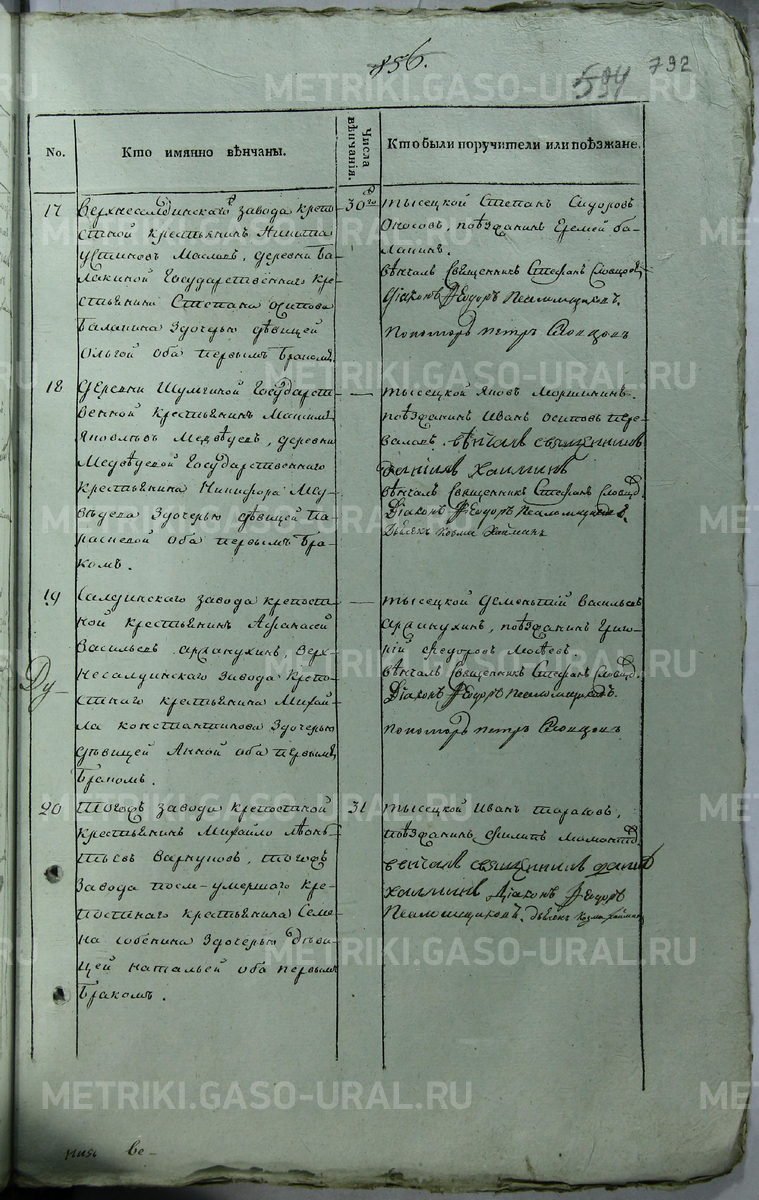 856.
594 792
No.
Кто имянно вѣнчаны.
Числа вѣнчанія.
Кто были поручители или поѣзжане.
17
Верхнесалдинскаго завода крепо-
стной крестьянинъ Никита
Устиновъ Маслаев, деревни Ба-
лакиной Государственнаго кре-
стьянина Степана Осипова
Балакина З дочерью дѣвицей
Ольгой оба первымъ Бракомъ.
30го
тысецкой Степанъ Сидоровъ
поѣзжанинъ Еремей Ба-
лакинъ.
вѣнчалъ Священникъ Стефанъ Словцовъ
Діаконъ Ѳеодоръ Псаломщиковъ.
Пономарь Петръ Словцовъ
18
Деревни Шумкиной Государст-
венной крестьянинъ Максимъ
Яковлевъ Медвѣдев, деревни
Медвѣдевой Государственнаго
крестьянина Никифора Мед-
вѣдева З дочерью дѣвицей Па-
раскевой оба первымъ Бра-
комъ.
—
тысецкой Яков Моршининъ.
поѣзжанинъ Иванъ Осиповъ Пере-
валовъ. вѣнчалъ священникъ
Даніилъ Хаминъ
вѣнчалъ Священникъ Стефанъ Словцов.
Діаконъ Ѳеодоръ Псаломщиковъ.
Дьячекъ Козма Хайминъ
19
Салдинскаго завода крепост-
ной крестьянинъ Афанасей
Васильевъ Архипухин, Верх-
несалдинскаго завода Крепо-
стнаго крестьянина Михай-
ла Константинова З дочерью
дѣвицей Анной оба первымъ
Бракомъ.
—
тысецкой Дементий Васильевъ
Архипухинъ, поѣзжанинъ Григо-
рій Ѳедоров
вѣнчалъ Священникъ Стефанъ Словцов.
Діаконъ Ѳеодоръ Псаломщиков.
Пономарь Петръ Словцовъ
Ду-
20
Тогожъ завода крепостной
крестьянинъ Михайло Леон-
тьевъ Варкунов, тогожъ
завода посл-умершаго кре-
постнаго крестьянина Семе-
на Собенина З дочерью дѣви-
цей Натальей оба первымъ
Бракомъ.
31
тысецкой Иванъ Тарасов,
поѣзжанинъ Филипъ
венчалъ священникъ Данiил
Хаминъ Діаконъ Ѳеодоръ
Псаломщиковъ. Дьячекъ Козма Хайминъ
ве-
METRIKI.GASO-URAL.RU